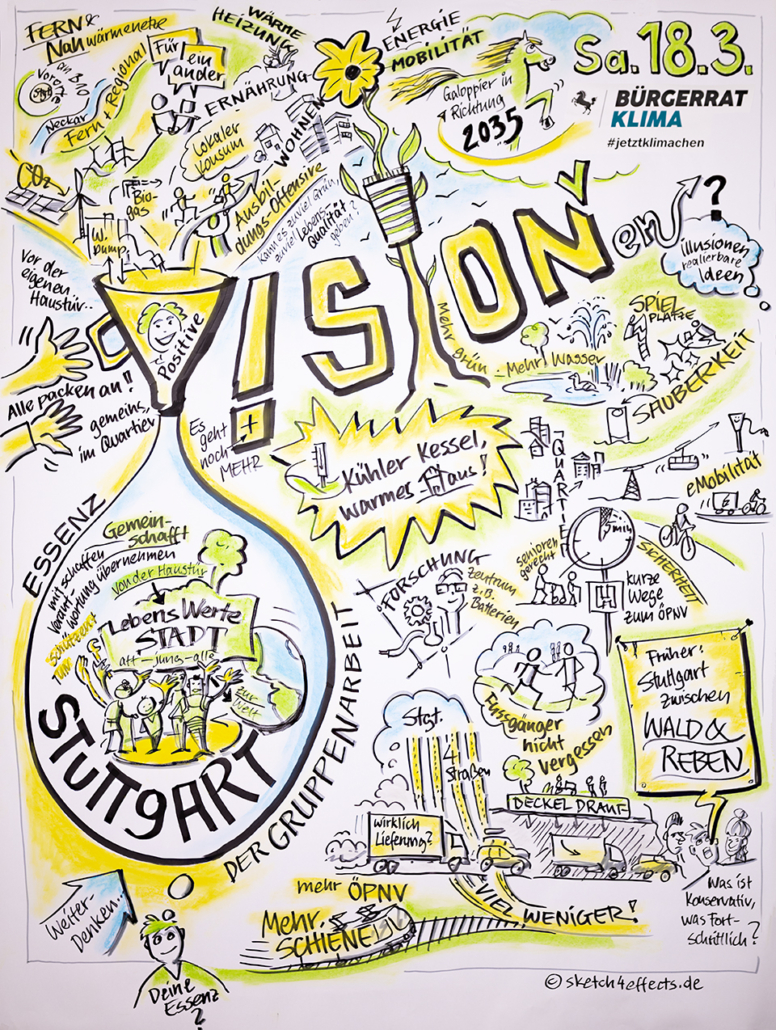 FERN &
Nahwärmenetze
Neckar
Fern + Regional
Für
ein
ander
WÄRME
HEIZUNG
ENERGIE
MOBILITÄT
ERNÄHRUNG
WOHNEN
Lokaler
Konsum
Galoppier in
Richtung
2035
Sa. 18.3.
BÜRGERRAT
KLIMA
#jetztklimachen
CO₂
Bio-
gas
W.
pump.
Ausbil-
dungs-Offensive
Kann es zuviel Grün,
zuviel Lebens-
qualität
geben?
Vor der
eigenen
Haustür..
Positive
V!SION
en
?
illusionen
realierbare
Ideen
Alle packen an!!
gemeins.
im Quartier
Es
geht
noch
MEHR
+
Mehr grün - Mehr Wasser
SPIEL
PLÄTZE
SAUBERKEIT
Kühler Kessel,
warmes Haus!
QUARTIER
eMobilität
5 min
SICHERHEIT
senioren
gerecht
kurze
Wege
zum ÖPNV
H
FORSCHUNG
zentrum
z.B.
Batterien
ESSENZ
DER GRUPPENARBEIT
Gemein-
schafft
mit schaffen
Verant-
wortung übernehmen
von der Haustür
LebensWerte
STADT
alt - jung - alle
zur
Welt
STUTTGART
Fussgänger
nicht
vergessen
Früher:
Stuttgart
zwischen
WALD &
REBEN
Stgt.
4
Straßen
DECKEL DRAUF
wirklich
Lieferung?
VIEL WENIGER!
mehr ÖPNV
Mehr
SCHIENE
Was ist
Konservativ,
was Fort-
schrittlich?
Weiter-
Denken..
Deine
Essenz
?
© sketch4effects.de